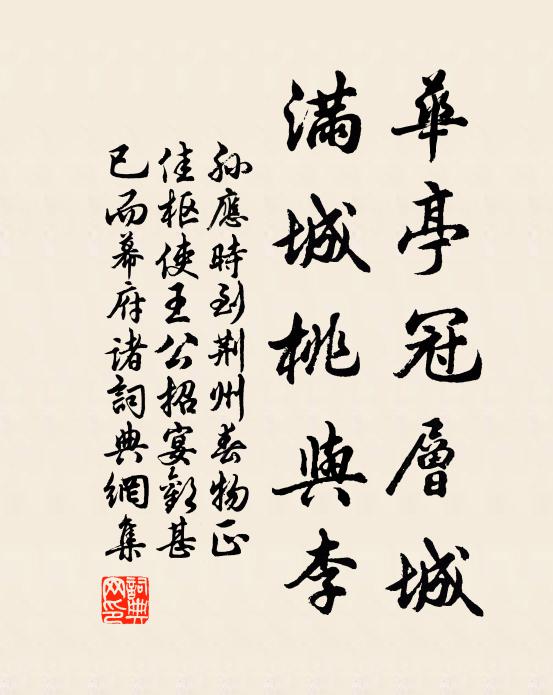 華亭冠層城
滿城桃與李
孫應時到荆州春物正
佳枢使王公招宴觀甚
已而幕府諸詞典網集
詞典
网印